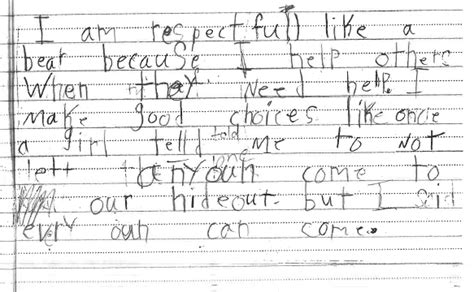 I am respectfull like a
bear because I help others
When they need help I
make good choices like once
a girl telld told me to not
lett anyouh one come to
our hideout but I said
every ouh can come.